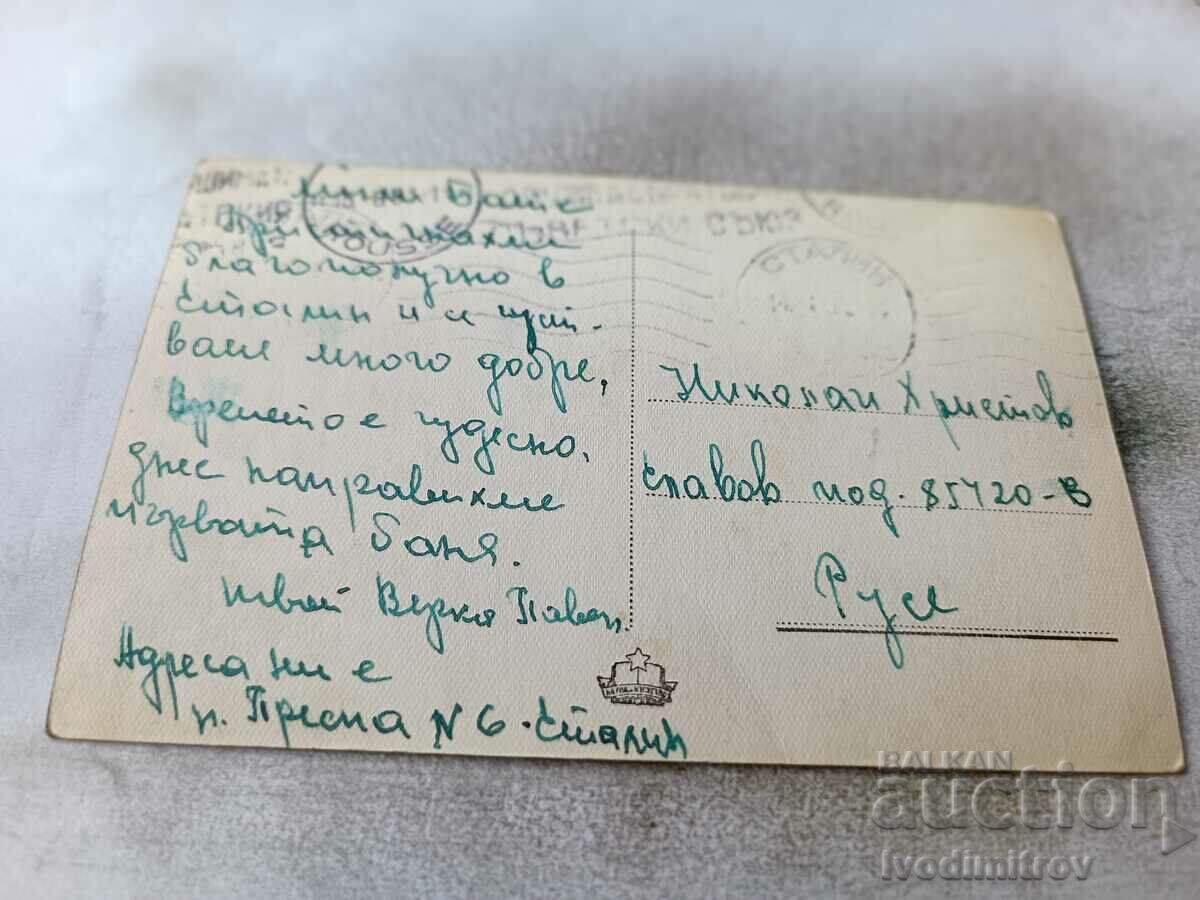 Мили Бате
Пристигнахме
благополучно в
Сталин и се чувст-
ваме много добре,
Времето е чудесно.
днес направихме
първата баня.
твой Верка Павел
Адреса ни е
п. Пресна N 6. Сталин
СЪВЕТСКИ СЪЮЗ
СТАЛИН
Николай Христов
Славов под. 85420-В
Русе
BALKAN
auction
Ivodimitrov